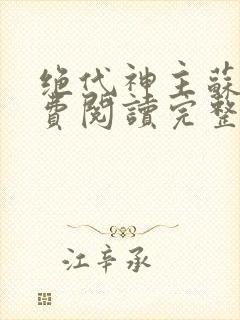 绝代神主蘇
費閱讀完整
江辛承